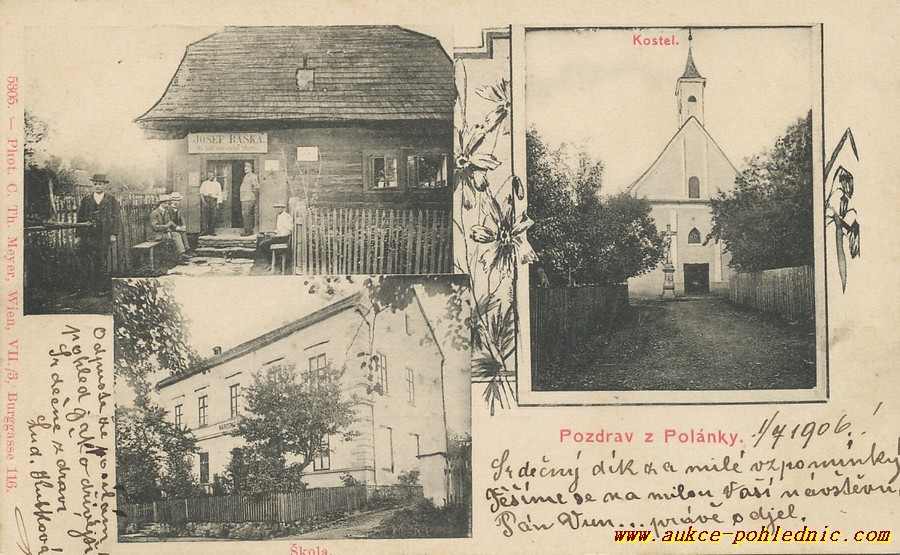 5305. — Phot. C. Th. Meyer, Wien, VII./3, Burggasse 116.
JOSEF BAŠKA
Kostel.
Škola.
Pozdrav z Polánky.
1/7 1906!
Srdečný dík za milé vzpomínky
Těšíme se na milou Vaší návštěvu.
Pán Vun... právě odjel.
pohled jako
Srdečně zdraví
www.aukce-pohlednic.com